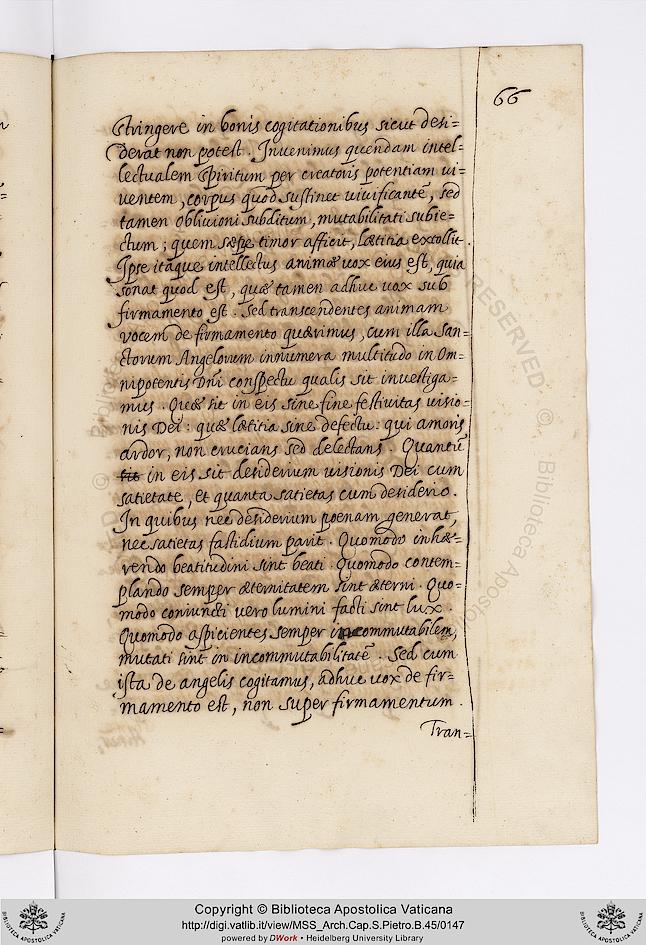 66
stringere in bonis cogitationibus sicut desi=
derat non potest. Invenimus quendam intel=
lectualem Spiritum per creatoris potentiam vi=
ventem, corpus quod sustinet vivificantē, sed
tamen oblivioni subditum, mutabilitati subie=
ctum; quem sæpe timor afficit, lætitia extollit.
Ipse itaque intellectus animæ vox eius est, quia
sonat quod est, quæ tamen adhuc vox sub
firmamento est. Sed transcendentes animam
vocem de firmamento quærimus, cum illa San=
ctorum Angelorum innumera multitudo in Om=
nipotentis Dn̄i conspectu qualis sit investiga=
mus. Quæ sit in eis sine fine festivitas visio=
nis Dei: quæ lætitia sine defectu: qui amoris
ardor, non crucians sed delectans. Quantū
sit in eis sit desiderium visionis Dei cum
satietate, et quanta satietas cum desiderio.
In quibus nec desiderium poenam generat,
nec satietas fastidium parit. Quomodo inhæ=
rendo beatitudini sint beati. Quomodo contem=
plando semper æternitatem sint æterni. Quo=
modo coniuncti vero lumini facti sint lux.
Quomodo aspicientes semper incommutabilem,
mutati sint in incommutabilitatē. Sed cum
ista de angelis cogitamus, adhuc vox de fir=
mamento est, non super firmamentum.
Tran=
RESERVED © Biblioteca Aposto
Copyright © Biblioteca Apostolica Vaticana
http://digi.vatlib.it/view/MSS_Arch.Cap.S.Pietro.B.45/0147
powered by DWork • Heidelberg University Library